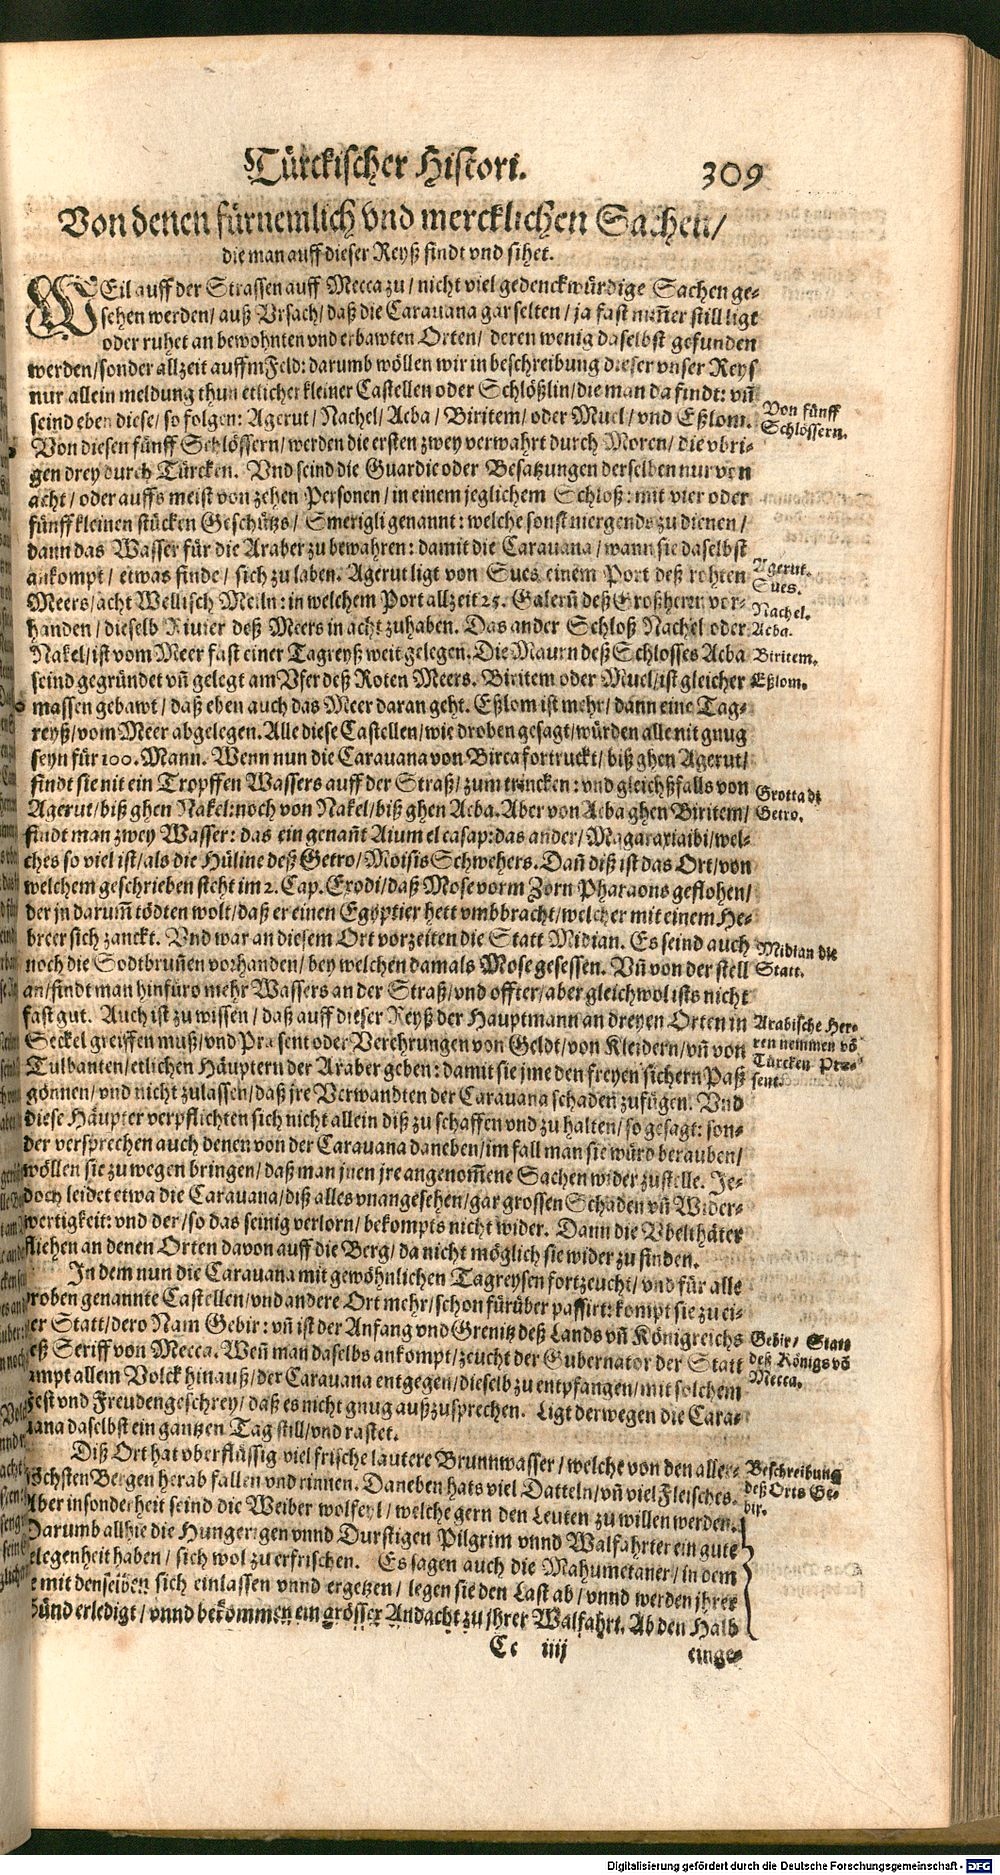 Türckischer Histori. 309
Von denen fürnemlich vnd mercklichen Sachen/
die man auff dieser Reyß findt vnd sihet.
WEil auff der Strassen auff Mecca zu/ nicht viel gedenckwürdige Sachen ge-
sehen werden/ auß Vrsach/ daß die Carauana gar selten/ ja fast nim̃er still ligt
oder ruhet an bewohnten vnd erbawten Orten/ deren wenig daselbst gefunden
werden/ sonder allzeit auffm Feld: darumb wöllen wir in beschreibung dieser vnser Reys
nur allein meldung thun etlicher kleiner Castellen oder Schlößlin/ die man da findt: vñ
seind eben diese/ so folgen: Agerut/ Nachel/ Acba/ Biritem/ oder Muel/ vnd Eßlom.
Von fünff
Schlössern.
Von diesen fünff Schlössern/ werden die ersten zwey verwahrt durch Moren/ die vbri-
gen drey durch Türcken. Vnd seind die Guardie oder Besatzungen derselben nur von
acht/ oder auffs meist von zehen Personen/ in einem jeglichem Schloß: mit vier oder
fünff kleinen stücken Geschützs/ Smerigli genannt: welche sonst niergends zu dienen/
dann das Wasser für die Araber zu bewahren: damit die Carauana/ wann sie daselbst
ankompt/ etwas finde/ sich zu laben. Agerut ligt von Sues einem Port deß rohten
Agerut.
Sues.
Meers/ acht Wellisch Meiln: in welchem Port allzeit 25. Galerñ deß Großherrn vor-
handen/ dieselb Riuier deß Meers in acht zuhaben. Das ander Schloß Nachel oder
Nachel.
Acba.
Nakel/ ist vom Meer fast einer Tagreyß weit gelegen. Die Maurn deß Schlosses Acba
Biritem.
seind gegründet vñ gelegt am Vfer deß Roten Meers. Biritem oder Muel/ ist gleicher
Eßlom.
massen gebawt/ daß eben auch das Meer daran geht. Eßlom ist mehr/ dann eine Tag-
reyß/ vom Meer abgelegen. Alle diese Castellen/ wie droben gesagt/ würden alle nit gnug
seyn für 100. Mann. Wenn nun die Carauana von Birca fortruckt/ biß ghen Agerut/
findt sie nit ein Tropffen Wassers auff der Straß/ zum trincken: vnd gleichßfalls von
Agerut/ biß ghen Nakel: noch von Nakel/ biß ghen Acba. Aber von Acba ghen Biritem/
Grotta di
Getro.
findt man zwey Wasser: das ein genañt Aium el casap: das ander/ Magaraxiaibi/ wel-
ches so viel ist/ als die Hüline deß Getro/ Moisis Schwehers. Dañ diß ist das Ort/ von
welchem geschrieben steht im 2. Cap. Exodi/ daß Mose vorm Zorn Pharaons geflohen/
der jn darum̃ tödten wolt/ daß er einen Egyptier hett vmbbracht/ welcher mit einem He-
breer sich zanckt. Vnd war an diesem Ort vorzeiten die Statt Midian. Es seind auch
Midian die
Statt.
noch die Sodtbruñen vorhanden/ bey welchen damals Mose gesessen. Vñ von der stell
an/ findt man hinfüro mehr Wassers an der Straß/ vnd offter/ aber gleichwol ists nicht
fast gut. Auch ist zu wissen/ daß auff dieser Reyß der Hauptmann an dreyen Orten in
Arabische Her-
ren nemmen vō
Türcken Præ-
sent.
Seckel greiffen muß/ vnd Præsent oder Verehrungen von Geldt/ von Kleidern/ vñ von
Tulbanten/ etlichen Häuptern der Araber geben: damit sie jme den freyen sichern Paß
gönnen/ vnd nicht zulassen/ daß jre Verwandten der Carauana schaden zufügen. Vnd
diese Häupter verpflichten sich nicht allein diß zu schaffen vnd zu halten/ so gesagt: son-
der versprechen auch denen von der Carauana daneben/ im fall man sie würd berauben/
wöllen sie zu wegen bringen/ daß man jnen jre angenom̃ene Sachen wider zustelle. Je-
doch leidet etwa die Carauana/ diß alles vnangesehen/ gar grossen Schaden vñ Wider-
wertigkeit: vnd der/ so das seinig verlorn/ bekompts nicht wider. Dann die Vbelthäter
fliehen an denen Orten davon auff die Berg/ da nicht möglich sie wider zu finden.
In dem nun die Carauana mit gewöhnlichen Tagreysen fortzeucht/ vnd für alle
droben genannte Castellen/ vnd andere Ort mehr/ schon fürüber passirt: kompt sie zu ei-
ner Statt/ dero Nam Gebir: vñ ist der Anfang vnd Grenitz deß Lands vñ Königreichs
Gebir/ Statt
deß Königs vō
Mecca.
eß Seriff von Mecca. Weñ man daselbs ankompt/ zeucht der Gubernator der Statt
ampt allem Volck hinauß/ der Carauana entgegen/ dieselb zu entpfangen/ mit solchem
Fest vnd Freudengeschrey/ daß es nicht gnug außzusprechen. Ligt derwegen die Cara-
uana daselbst ein gantzen Tag still/ vnd rastet.
Diß Ort hat vberflüssig viel frische lautere Brunnwasser/ welche von den aller-
Beschreibung
deß Orts Ge-
bir.
höchsten Bergen herab fallen vnd rinnen. Daneben hats viel Datteln/ vñ viel Fleisches.
Aber insonderheit seind die Weiber wolfeyl/ welche gern den Leuten zu willen werden.
Darumb allhie die Hungerigen vnnd Durstigen Pilgrim vnnd Walfahrter ein gute
elegenheit haben/ sich wol zu erfrischen. Es sagen auch die Mahumetaner/ in dem
e mit denselben sich einlassen vnnd ergetzen/ legen sie den Last ab/ vnnd werden jhrer
Sünd erledigt/ vnnd bekommen ein grösser Andacht zu jhrer Walfahrt. Ab den Halb
Cc iiij einge-
Digitalisierung gefördert durch die Deutsche Forschungsgemeinschaft - DFG